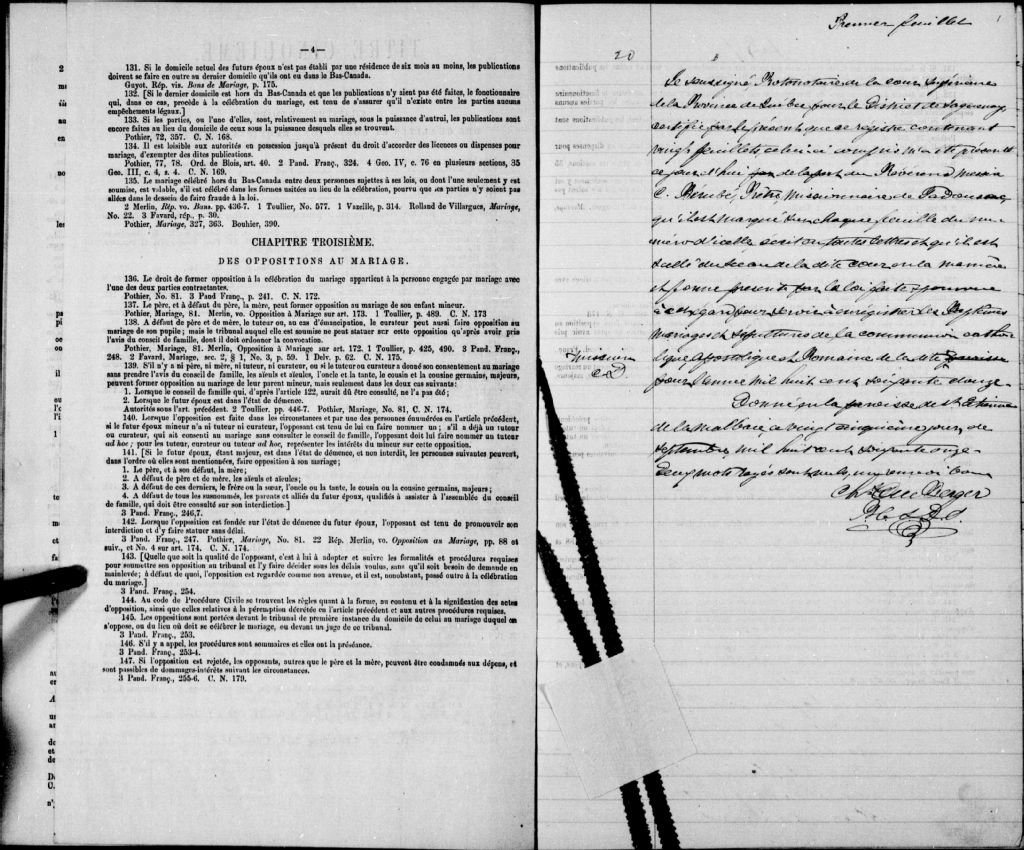 —4—
131. Si le domicile actuel des futurs époux n'est pas établi par une résidence de six mois au moins, les publications
doivent se faire en outre au dernier domicile qu'ils ont eu dans le Bas-Canada.
Guyot. Rép. vis. Bans de Mariage, p. 175.
132. [Si le dernier domicile est hors du Bas-Canada et que les publications n'y aient pas été faites, le fonctionnaire
qui, dans ce cas, procède à la célébration du mariage, est tenu de s'assurer qu'il n'existe entre les parties aucuns
empêchements légaux.]
133. Si les parties, ou l'une d'elles, sont, relativement au mariage, sous la puissance d'autrui, les publications sont
encore faites au lieu du domicile de ceux sous la puissance desquels elles se trouvent.
Pothier, 72, 357. C. N. 168.
134. Il est loisible aux autorités en possession jusqu'à présent du droit d'accorder des licences ou dispenses pour
mariage, d'exempter des dites publications.
Pothier, 77, 78. Ord. de Blois, art. 40. 2 Pand. Franç., 324. 4 Geo. IV, c. 76 en plusieurs sections, 35
Geo. III, c. 4, s. 4. C. N. 169.
135. Le mariage célébré hors du Bas-Canada entre deux personnes sujettes à ses lois, ou dont l'une seulement y est
soumise, est valable, s'il est célébré dans les formes usitées au lieu de la célébration, pourvu que les parties n'y soient pas
allées dans le dessein de faire fraude à la loi.
2 Merlin, Rép. vo. Bans. pp. 436-7. 1 Toullier, No. 577. 1 Vazeille, p. 314. Rolland de Villargues, Mariage,
No. 22. 3 Favard, rép., p. 30.
Pothier, Mariage, 327, 363. Bouhier, 390.
CHAPITRE TROISIÈME.
DES OPPOSITIONS AU MARIAGE.
136. Le droit de former opposition à la célébration du mariage appartient à la personne engagée par mariage avec
l'une des deux parties contractantes.
Pothier, No. 81. 3 Pand Franç., p. 241. C. N. 172.
137. Le père, et à défaut du père, la mère, peut former opposition au mariage de son enfant mineur.
Pothier, Mariage, 81. Merlin, vo. Opposition à Mariage sur art. 173. 1 Toullier, p. 489. C. N. 173
138. A défaut de père et de mère, le tuteur ou, au cas d'émancipation, le curateur peut aussi faire opposition au
mariage de son pupile; mais le tribunal auquel elle est soumise ne peut statuer sur cette opposition qu'après avoir pris
l'avis du conseil de famille, dont il doit ordonner la convocation.
Pothier, Mariage, 81. Merlin, Opposition à Mariage sur art. 172. 1 Toullier, p. 425, 490. 3 Pand. Franç.,
248. 2 Favard, Mariage, sec. 2, § 1, No. 3, p. 59. 1 Delv. p. 62. C. N. 175.
139. S'il n'y a ni père, ni mère, ni tuteur, ni curateur, ou si le tuteur ou curateur a donné son consentement au mariage
sans prendre l'avis du conseil de famille, les aïeuls et aïeules, l'oncle et la tante, le cousin et la cousine germains, majeurs,
peuvent former opposition au mariage de leur parent mineur, mais seulement dans les deux cas suivants:
1. Lorsque le conseil de famille qui, d'après l'article 122, aurait dû être consulté, ne l'a pas été;
2. Lorsque le futur époux est dans l'état de démence.
Autorités sous l'art. précédent. 2 Toullier. pp. 446-7. Pothier, Mariage, No. 81, C. N. 174.
140. Lorsque l'opposition est faite dans les circonstances et par une des personnes énumérées en l'article précédent,
si le futur époux mineur n'a ni tuteur ni curateur, l'opposant est tenu de lui en faire nommer un; s'il a déjà un tuteur
ou curateur, qui ait consenti au mariage sans consulter le conseil de famille, l'opposant doit lui faire nommer un tuteur
ad hoc; pour les tuteur, curateur ou tuteur ad hoc, représenter les intérêts du mineur sur cette opposition.
141. [Si le futur époux, étant majeur, est dans l'état de démence, et non interdit, les personnes suivantes peuvent,
dans l'ordre où elles sont mentionnées, faire opposition à son mariage;
1. Le père, et à son défaut, la mère;
2. A défaut de père et de mère, les aïeuls et aïeules;
3. A défaut de ces derniers, le frère ou la sœur, l'oncle ou la tante, le cousin ou la cousine germains, majeurs;
4. A défaut de tous les susnommés, les parents et alliés du futur époux, qualifiés à assister à l'assemblée du conseil
de famille, qui doit être consulté sur son interdiction.]
3 Pand. Franç., 246,7.
142. Lorsque l'opposition est fondée sur l'état de démence du futur époux, l'opposant est tenu de promouvoir son
interdiction et d'y faire statuer sans délai.
3 Pand. Franç., 247. Pothier, Mariage, No. 81. 22 Rép. Merlin, vo. Opposition au Mariage, pp. 88 et
suiv., et No. 4 sur art. 174. C. N. 174.
143. [Quelle que soit la qualité de l'opposant, c'est à lui à adopter et suivre les formalités et procédures requises
pour soumettre son opposition au tribunal et l'y faire décider sous les délais voulus, sans qu'il soit besoin de demande en
mainlevée; à défaut de quoi, l'opposition est regardée comme non avenue, et il est, nonobstant, passé outre à la célébration
du mariage.]
3 Pand. Franç., 254.
144. Au code de Procédure Civile se trouvent les règles quant à la forme, au contenu et à la signification des actes
d'opposition, ainsi que celles relatives à la péremption décrétée en l'article précédent et aux autres procédures requises.
145. Les oppositions sont portées devant le tribunal de première instance du domicile de celui au mariage duquel on
s'oppose, ou du lieu où doit se célébrer le mariage, ou devant un juge de ce tribunal.
3 Pand. Franç., 253.
146. S'il y a appel, les procédures sont sommaires et elles ont la préséance.
3 Pand. Franç., 253-4.
147. Si l'opposition est rejetée, les opposants, autres que le père et la mère, peuvent être condamnés aux dépens, et
sont passibles de dommages-intérêts suivant les circonstances.
3 Pand. Franç., 255-6. C. N. 179.
Premier feuillet
20
Je soussigné Protonotaire de la cour Supérieure
de la Province de Québec pour le District de Saguenay
certifie par le présent que ce registre contenant
vingt feuillets celui-ci compris m'a été présenté
ce jourd'hui par de la part du Révérend Messire
C. Bérubé, Prêtre, Missionnaire de Tadoussac
qu'il est marqué sur chaque feuille du nu-
méro d'icelle écrit en toutes lettres et qu'il est
scellé du sceau de la dite cour en la manière
et forme prescrite par la loi faite et pourvue
à cet égard pour servir à enregistrer les Baptêmes
mariages et sépultures de la communion catho-
lique apostolique et Romaine de la dite paroisse
mission
pour l'année mil huit cent soixante douze
Donné en la paroisse de St. Etienne
de la Malbaie ce vingt cinquième jour de
Septembre mil huit cent soixante onze
Deux mots rayés sont nuls, un renvoi bon